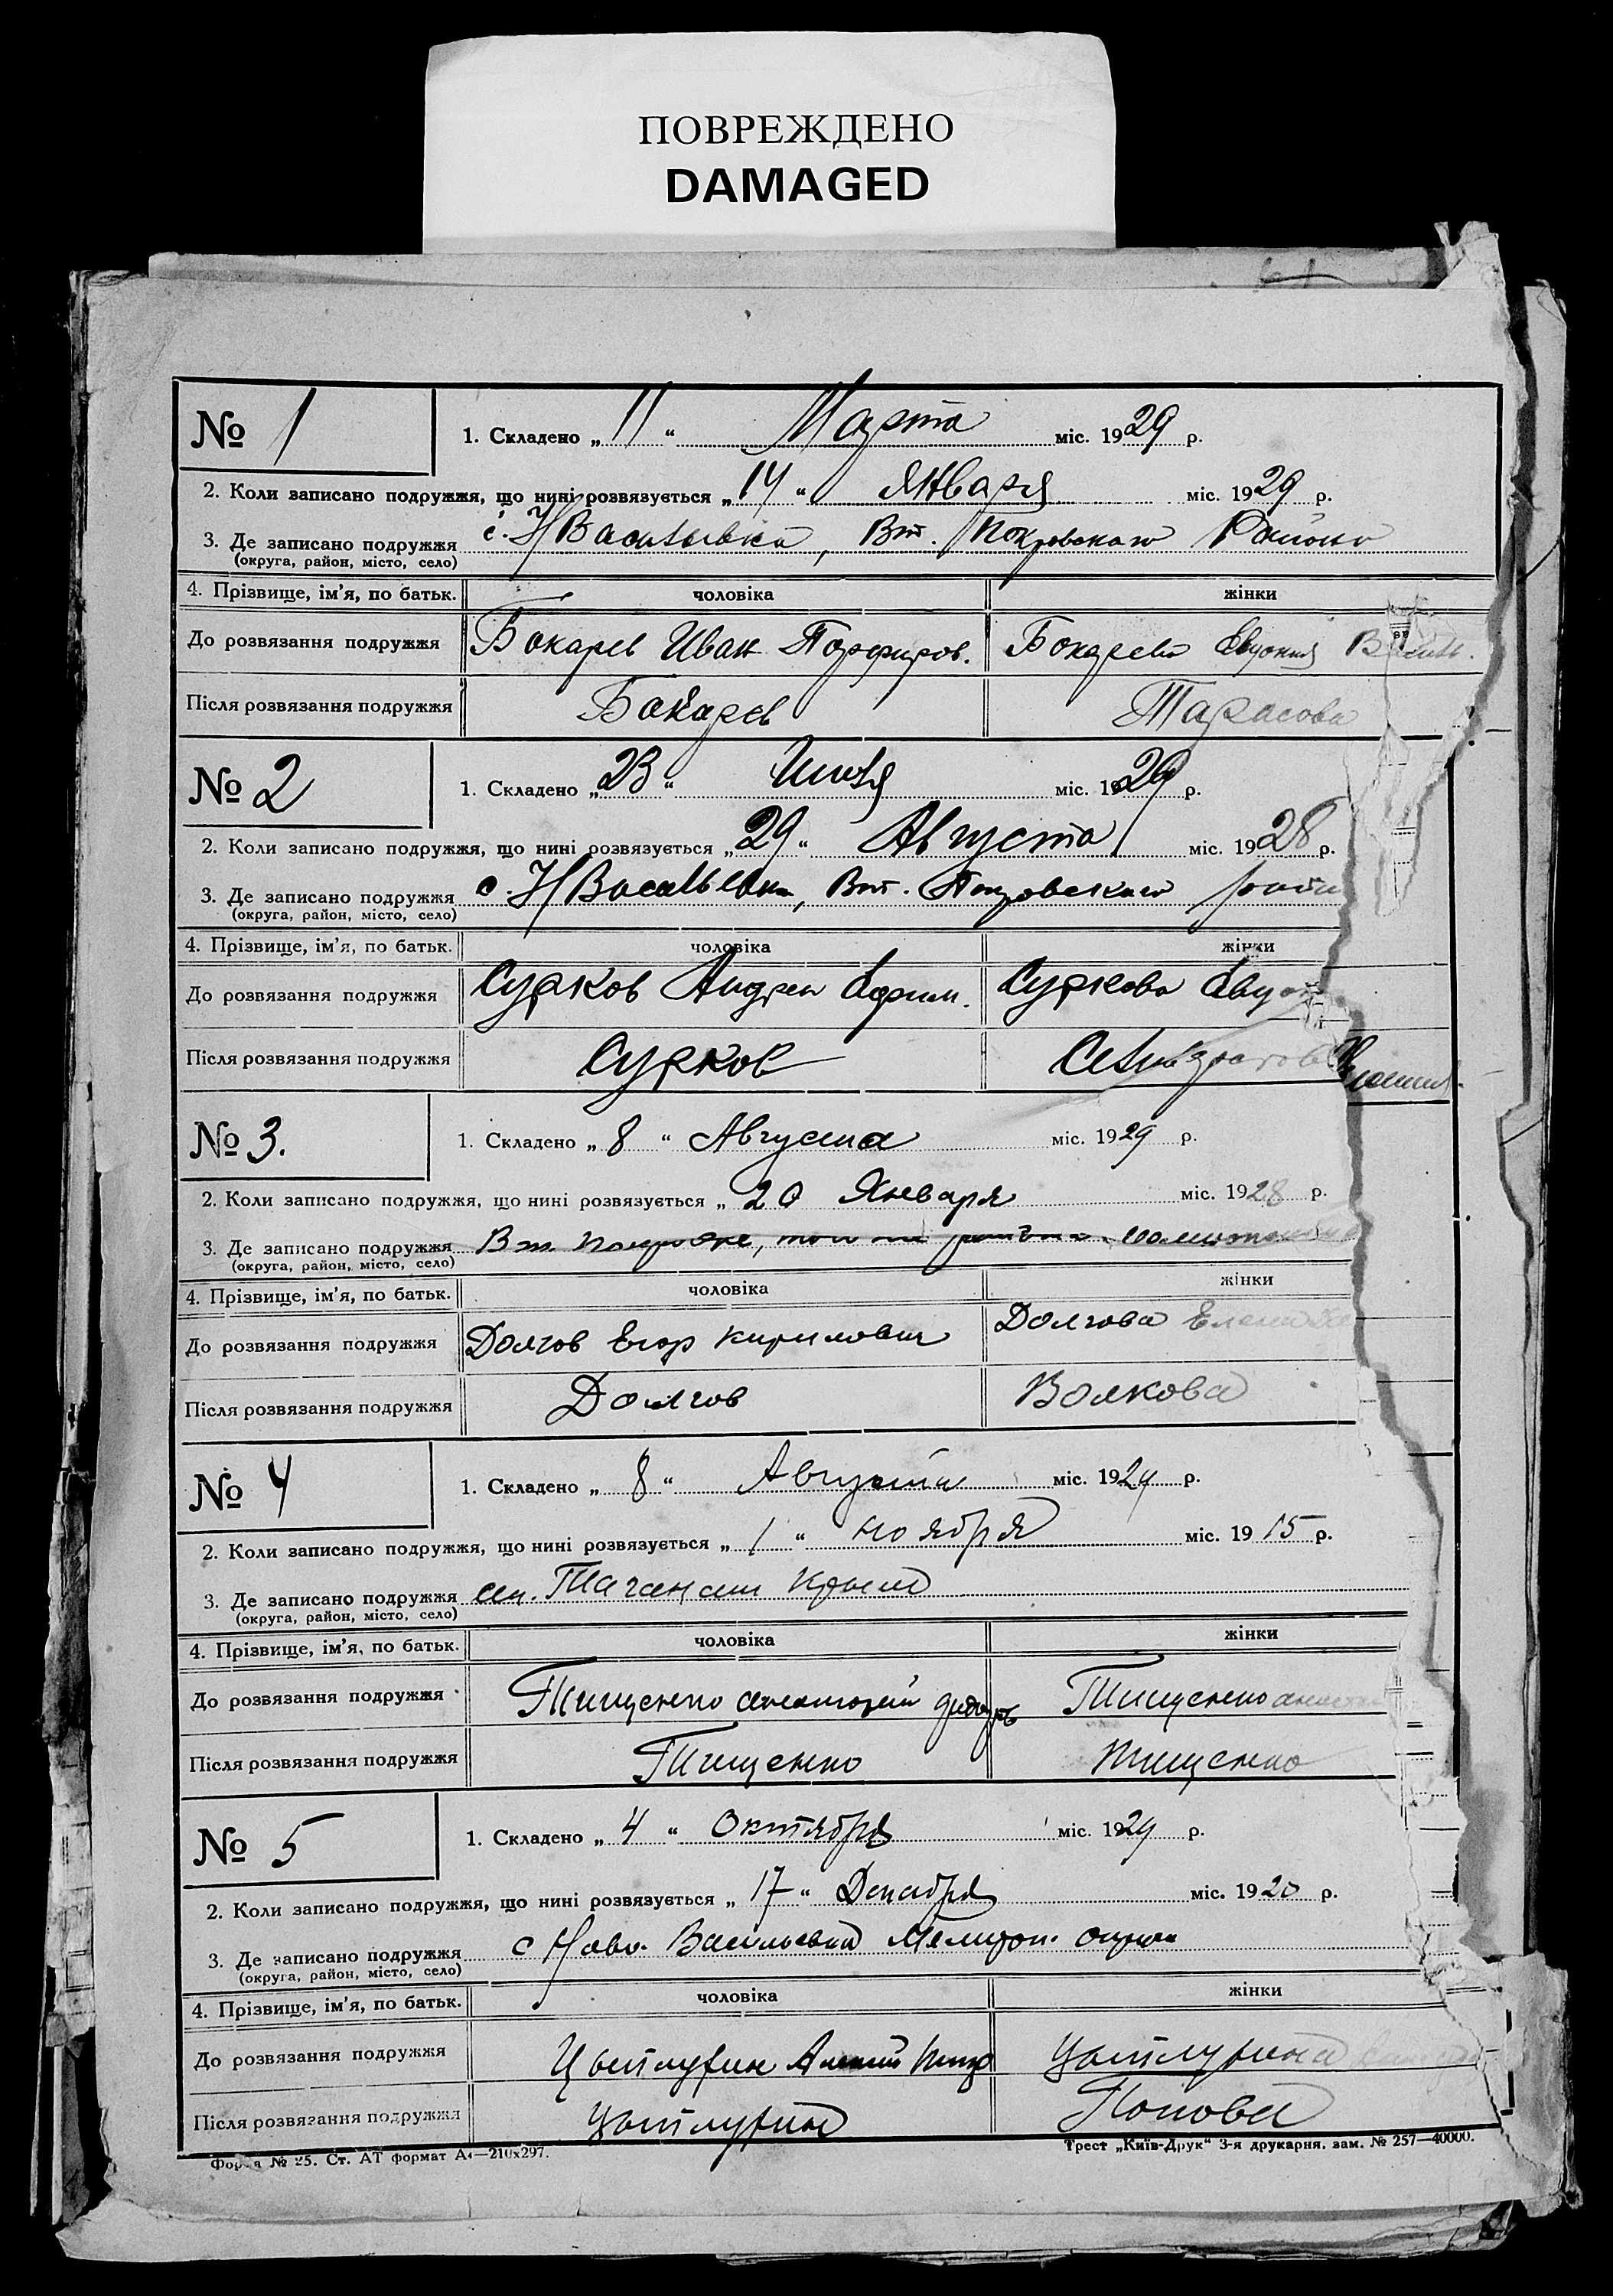 ПОВРЕЖДЕНО
DAMAGED
№ 1
1. Складено „ 11 “ Марта міс. 1929 р.
2. Коли записано подружжя, що нині розвязується „ 14 “ Января міс. 1929 р.
3. Де записано подружжя с. Н Васильевка, Вт. Покровского Района
(округа, район, місто, село)
4. Прізвище, ім’я, по батьк. чоловіка жінки
До розвязання подружжя Бокарев Иван Порфиров. Бокарева Евдокия Василь.
Після розвязання подружжя Бокарев Тарасова
№ 2
1. Складено „ 23 “ Июля міс. 1929 р.
2. Коли записано подружжя, що нині розвязується „ 29 “ Августа міс. 1928 р.
3. Де записано подружжя с. Н Васильевка, Вт. Покровского
(округа, район, місто, село)
4. Прізвище, ім’я, по батьк. чоловіка жінки
До розвязання подружжя Сурков Андрей Ефим. Суркова
Після розвязання подружжя Сурков
№ 3.
1. Складено „ 8 “ Августа міс. 1929 р.
2. Коли записано подружжя, що нині розвязується „ 20 Января міс. 1928 р.
3. Де записано подружжя Вт.
(округа, район, місто, село)
4. Прізвище, ім’я, по батьк. чоловіка жінки
До розвязання подружжя Долгов Егор Кирилович Долгова Елена
Після розвязання подружжя Долгов Волкова
№ 4
1. Складено „ 8 “ Августа міс. 1929 р.
2. Коли записано подружжя, що нині розвязується „ 1 “ ноября міс. 1915 р.
3. Де записано подружжя Крым
(округа, район, місто, село)
4. Прізвище, ім’я, по батьк. чоловіка жінки
До розвязання подружжя Тищенко Тищенко
Після розвязання подружжя Тищенко Тищенко
№ 5
1. Складено „ 4 “ Октября міс. 1929 р.
2. Коли записано подружжя, що нині розвязується „ 17 “ Декабря міс. 1920 р.
3. Де записано подружжя с Ново. Васильевка Мелитоп. округа
(округа, район, місто, село)
4. Прізвище, ім’я, по батьк. чоловіка жінки
До розвязання подружжя
Після розвязання подружжя Попова
Форма № 25. Ст. АТ формат А4—210х297. Трест „Київ-Друк“ 3-я друкарня. зам. № 257—40000.